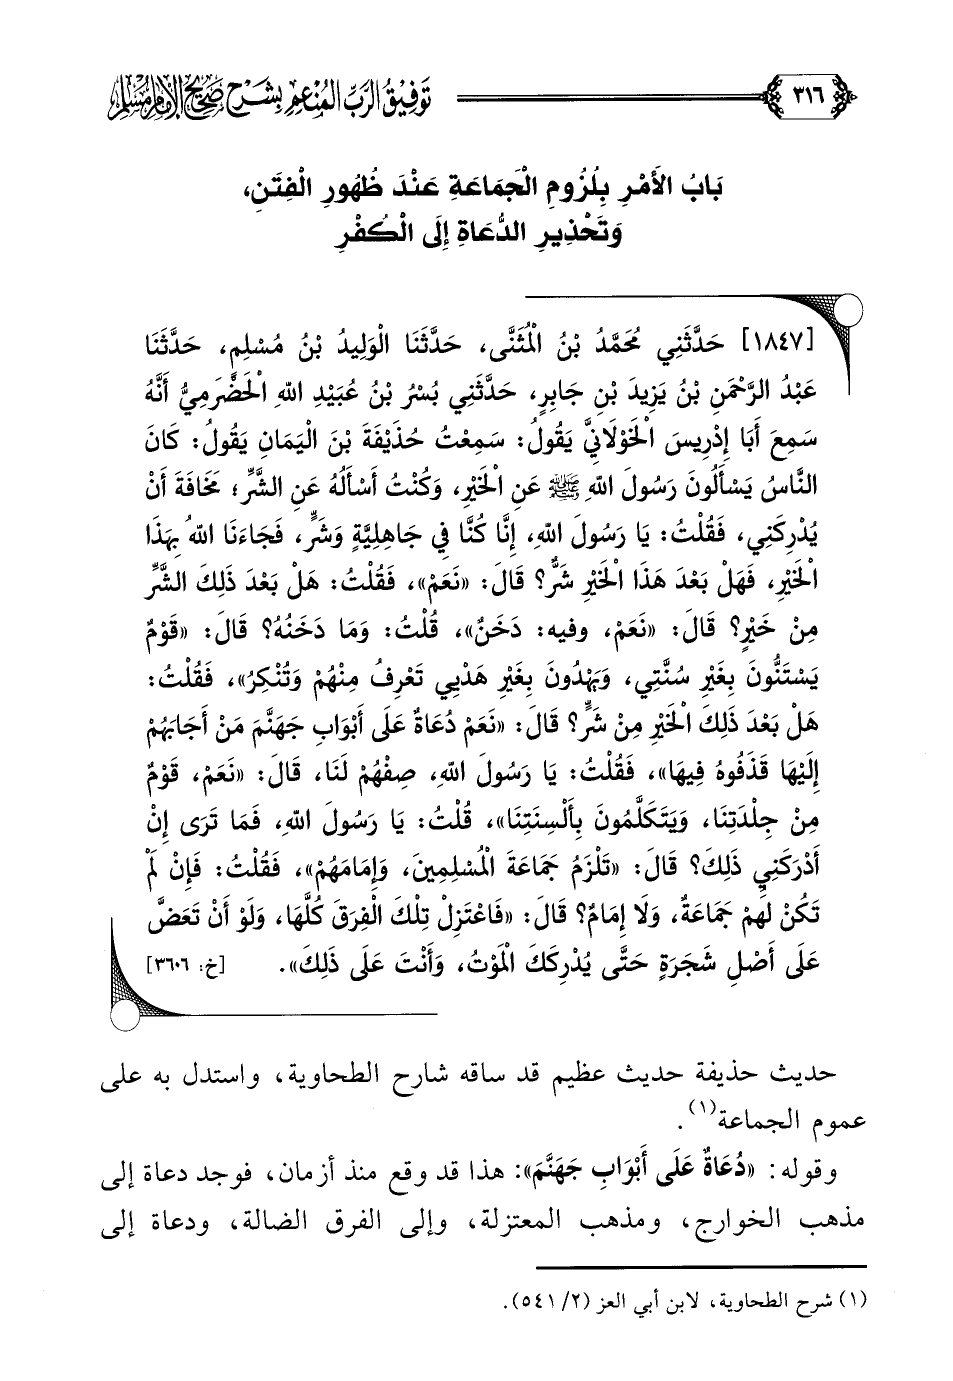 ٣١٦
توفيق الرب المنعم بشرح صحيح الإمام مسلم
بَابُ الأَمْرِ بِلُزُومِ الْجَمَاعَةِ عَنْدَ ظُهُورِ الْفِتَنِ،
وَتَحْذِيرِ الدُّعَاةِ إِلَى الْكُفْرِ
[١٨٤٧] حَدَّثَنِي مُحَمَّدُ بْنُ الْمُثَنَّى، حَدَّثَنَا الْوَلِيدُ بْنُ مُسْلِمٍ، حَدَّثَنَا
عَبْدُ الرَّحْمَنِ بْنُ يَزِيدَ بْنِ جَابِرٍ، حَدَّثَنِي بُسْرُ بْنُ عُبَيْدِ اللهِ الْحَضْرَمِيُّ أَنَّهُ
سَمِعَ أَبَا إِدْرِيسَ الْخَوْلَانِيَّ يَقُولُ: سَمِعْتُ حُذَيْفَةَ بْنَ الْيَمَانِ يَقُولُ: كَانَ
النَّاسُ يَسْأَلُونَ رَسُولَ اللهِ ﷺ عَنِ الْخَيْرِ، وَكُنْتُ أَسْأَلُهُ عَنِ الشَّرِّ؛ مَخَافَةَ أَنْ
يُدْرِكَنِي، فَقُلْتُ: يَا رَسُولَ اللهِ، إِنَّا كُنَّا فِي جَاهِلِيَّةٍ وَشَرٍّ، فَجَاءَنَا اللهُ بِهَذَا
الْخَيْرِ، فَهَلْ بَعْدَ هَذَا الْخَيْرِ شَرٌّ؟ قَالَ: «نَعَمْ»، فَقُلْتُ: هَلْ بَعْدَ ذَلِكَ الشَّرِّ
مِنْ خَيْرٍ؟ قَالَ: «نَعَمْ، وفيه: دَخَنٌ»، قُلْتُ: وَمَا دَخَنُهُ؟ قَالَ: «قَوْمٌ
يَسْتَنُّونَ بِغَيْرِ سُنَّتِي، وَيَهْدُونَ بِغَيْرِ هَدْيِي تَعْرِفُ مِنْهُمْ وَتُنْكِرُ»، فَقُلْتُ:
هَلْ بَعْدَ ذَلِكَ الْخَيْرِ مِنْ شَرٍّ؟ قَالَ: «نَعَمْ دُعَاةٌ عَلَى أَبْوَابِ جَهَنَّمَ مَنْ أَجَابَهُمْ
إِلَيْهَا قَذَفُوهُ فِيهَا»، فَقُلْتُ: يَا رَسُولَ اللهِ، صِفْهُمْ لَنَا، قَالَ: «نَعَمْ، قَوْمٌ
مِنْ جِلْدَتِنَا، وَيَتَكَلَّمُونَ بِأَلْسِنَتِنَا»، قُلْتُ: يَا رَسُولَ اللهِ، فَمَا تَرَى إِنْ
أَدْرَكَنِي ذَلِكَ؟ قَالَ: «تَلْزَمُ جَمَاعَةَ الْمُسْلِمِينَ، وَإِمَامَهُمْ»، فَقُلْتُ: فَإِنْ لَمْ
تَكُنْ لَهُمْ جَمَاعَةٌ، وَلَا إِمَامٌ؟ قَالَ: «فَاعْتَزِلْ تِلْكَ الْفِرَقَ كُلَّهَا، وَلَوْ أَنْ تَعَضَّ
عَلَى أَصْلِ شَجَرَةٍ حَتَّى يُدْرِكَكَ الْمَوْتُ، وَأَنْتَ عَلَى ذَلِكَ». [خ: ٣٦٠٦]
حديث حذيفة حديث عظيم قد ساقه شارح الطحاوية، واستدل به على
عموم الجماعة(١).
وقوله: «دُعَاةٌ عَلَى أَبْوَابِ جَهَنَّمَ»: هذا قد وقع منذ أزمان، فوجد دعاة إلى
مذهب الخوارج، ومذهب المعتزلة، وإلى الفرق الضالة، ودعاة إلى
(١) شرح الطحاوية، لابن أبي العز (٢/ ٥٤١).